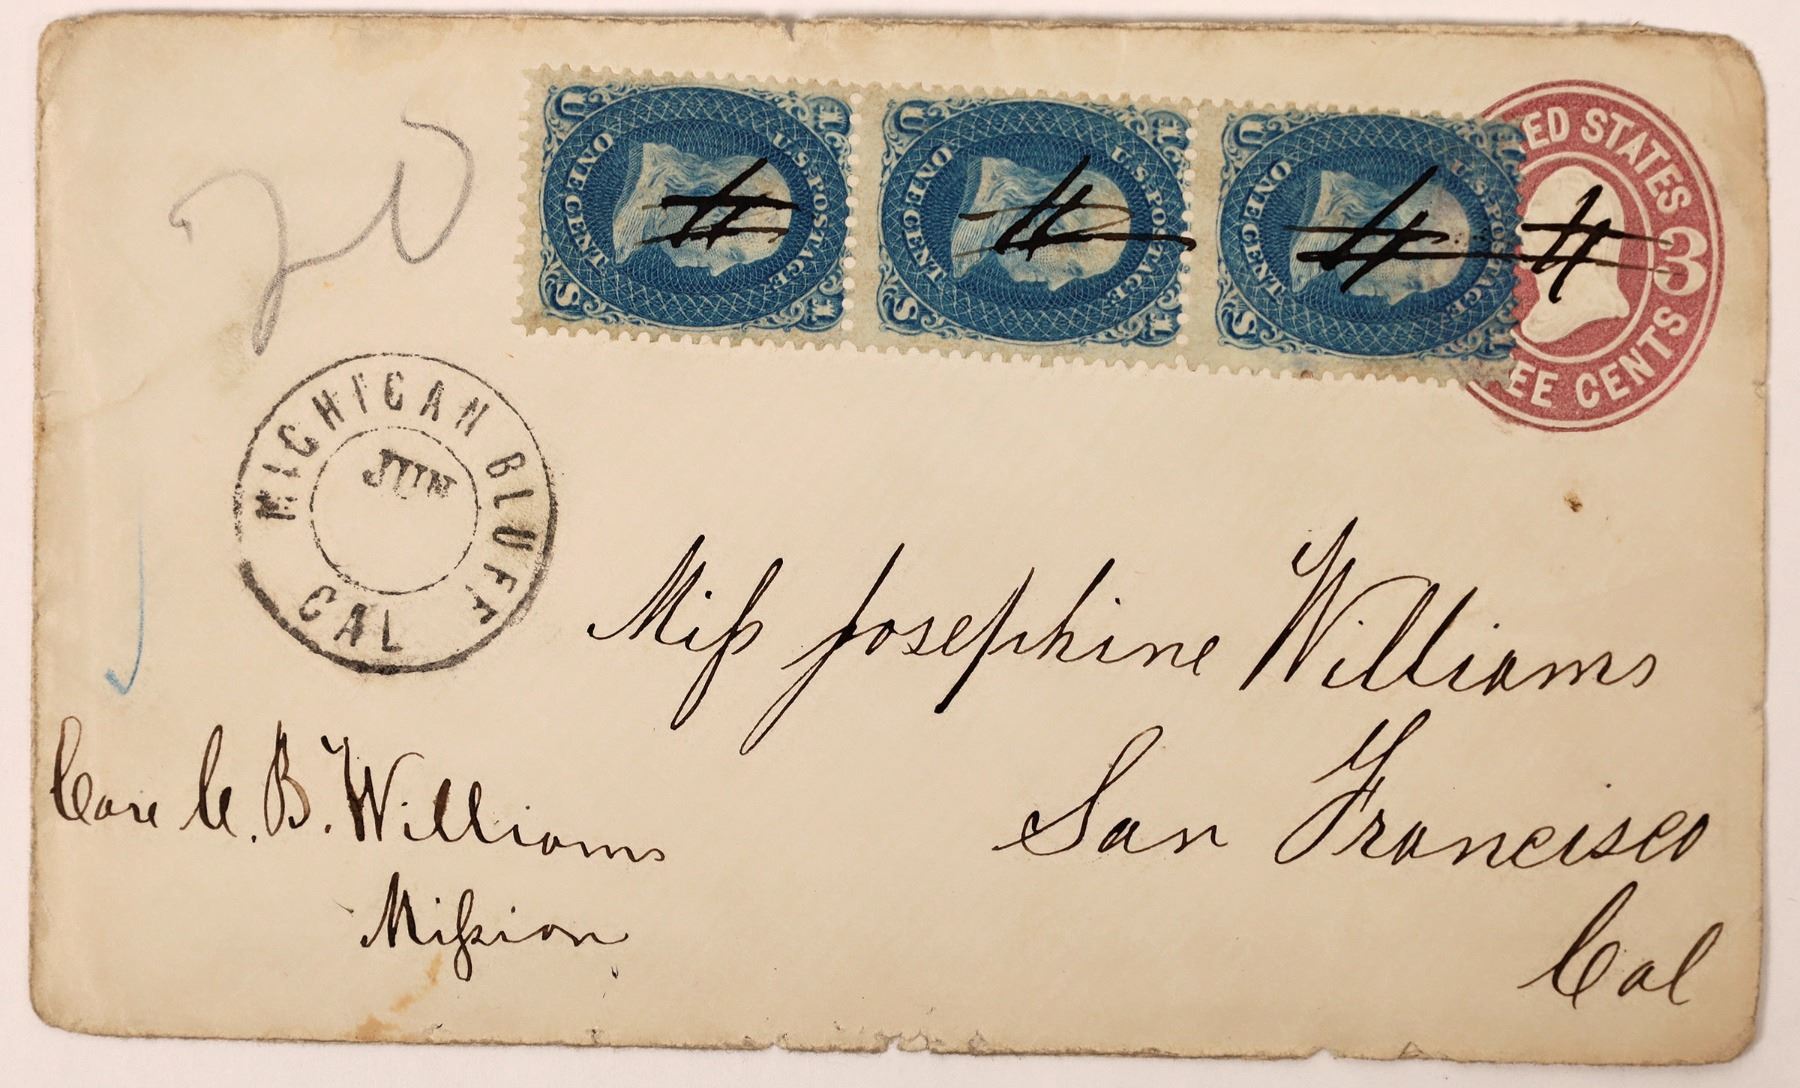 20
U.S. POSTAGE.
ONE CENT.
U S
1 1
U.S. POSTAGE.
ONE CENT.
U S
1 1
U.S. POSTAGE.
ONE CENT.
U S
1
ED STATES
3
EE CENTS
MICHIGAN BLUFF
JUN
CAL
Miſs Josephine Williams
San Francisco
Cal
Care C. B. Williams
Miſsion